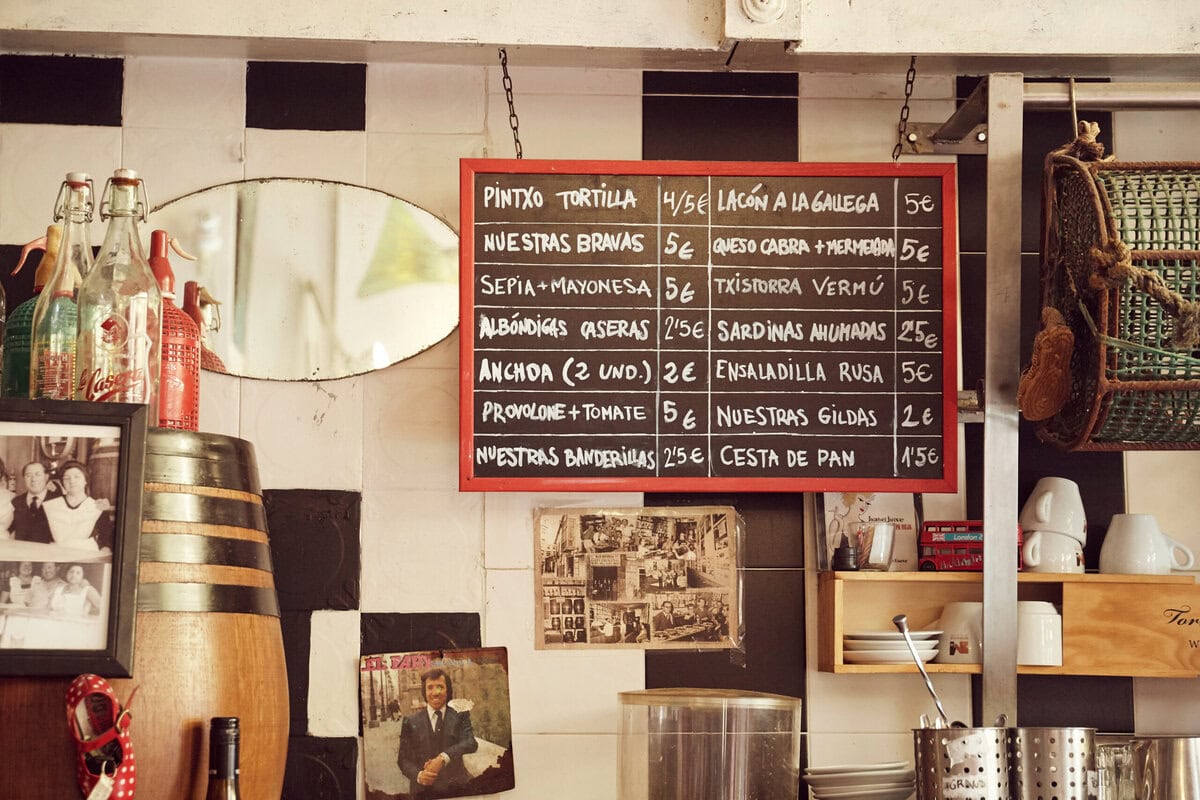 PINTXO TORTILLA 4/5€
NUESTRAS BRAVAS 5€
SEPIA + MAYONESA 5€
ALBÓNDIGAS CASERAS 2'5€
ANCHOA (2 UND.) 2€
PROVOLONE + TOMATE 5€
NUESTRAS BANDERILLAS 2'5€
LACÓN A LA GALLEGA 5€
QUESO CABRA + MERMELADA 5€
TXISTORRA VERMÚ 5€
SARDINAS AHUMADAS 2'5€
ENSALADILLA RUSA 5€
NUESTRAS GILDAS 2€
CESTA DE PAN 1'5€
La Casera
London
EL